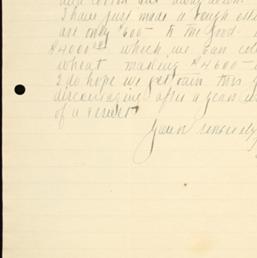 I have just made a rough esti
are only $600 - to the good - 
$4000 which we can coll
wheat making $4600 -
I do hope we get rain this y
discouraging after a years w
of a result
Yours sincerely